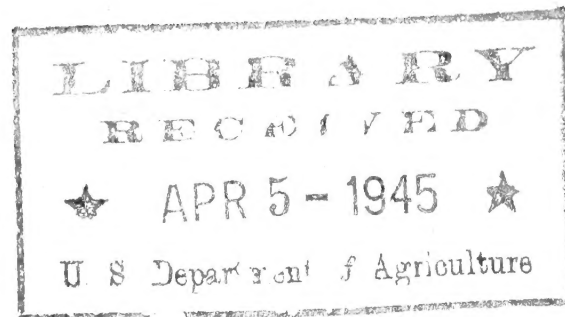 LIBRARY
RECEIVED
★ APR 5 - 1945 ★
U. S. Department of Agriculture